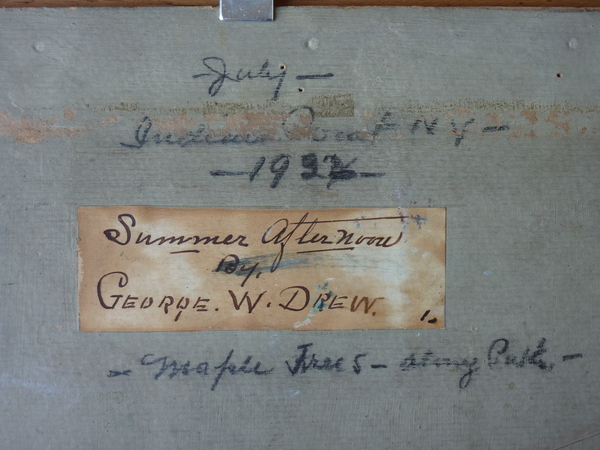 July —
Indian Point N Y —
— 192 —
Summer Afternoon
By.
GEORGE. W. DREW.
1.
— Maple Trees —